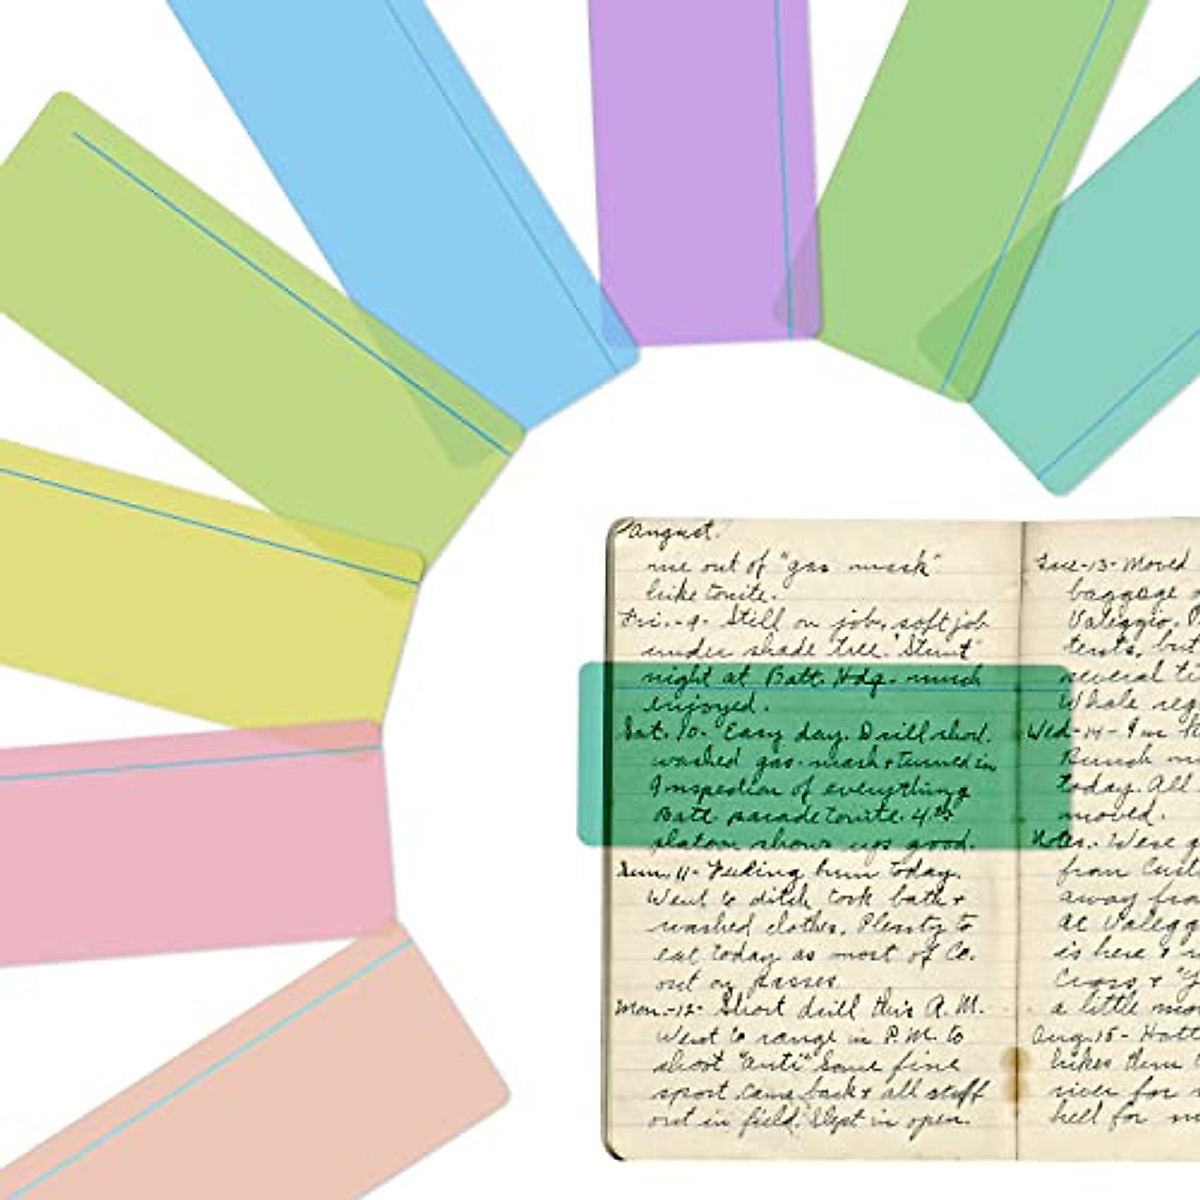 August.
me out of "gas mask"
like tonite.
Fri.-9- Still on job, soft job
under shade tree. "Stunt"
night at Batt. Hdq. much
enjoyed.
Sat. 10- Easy day. Drill short.
washed gas-mask & turned in
Inspection of everything
Batt parade tonite. 4th
platoon shows up good.
Sun. 11- Feeling bum today.
Went to ditch took bath &
washed clothes. Plenty to
eat today as most of Co.
out on passes
Mon.-12- Short drill this A.M.
Went to range in P.M. to
shoot "anti" Some fine
sport came back & all stuff
out in field. Slept in open.
Tue-13- Moved
baggage
Valeggio.
tents, but
several
Whole reg
Wed-14-
Bunch
today. All
moved.
Notes. Were
from
away
at Valegg
is here &
Cross & "Y
a little
Aug.15-
hikes them
river for
hell for